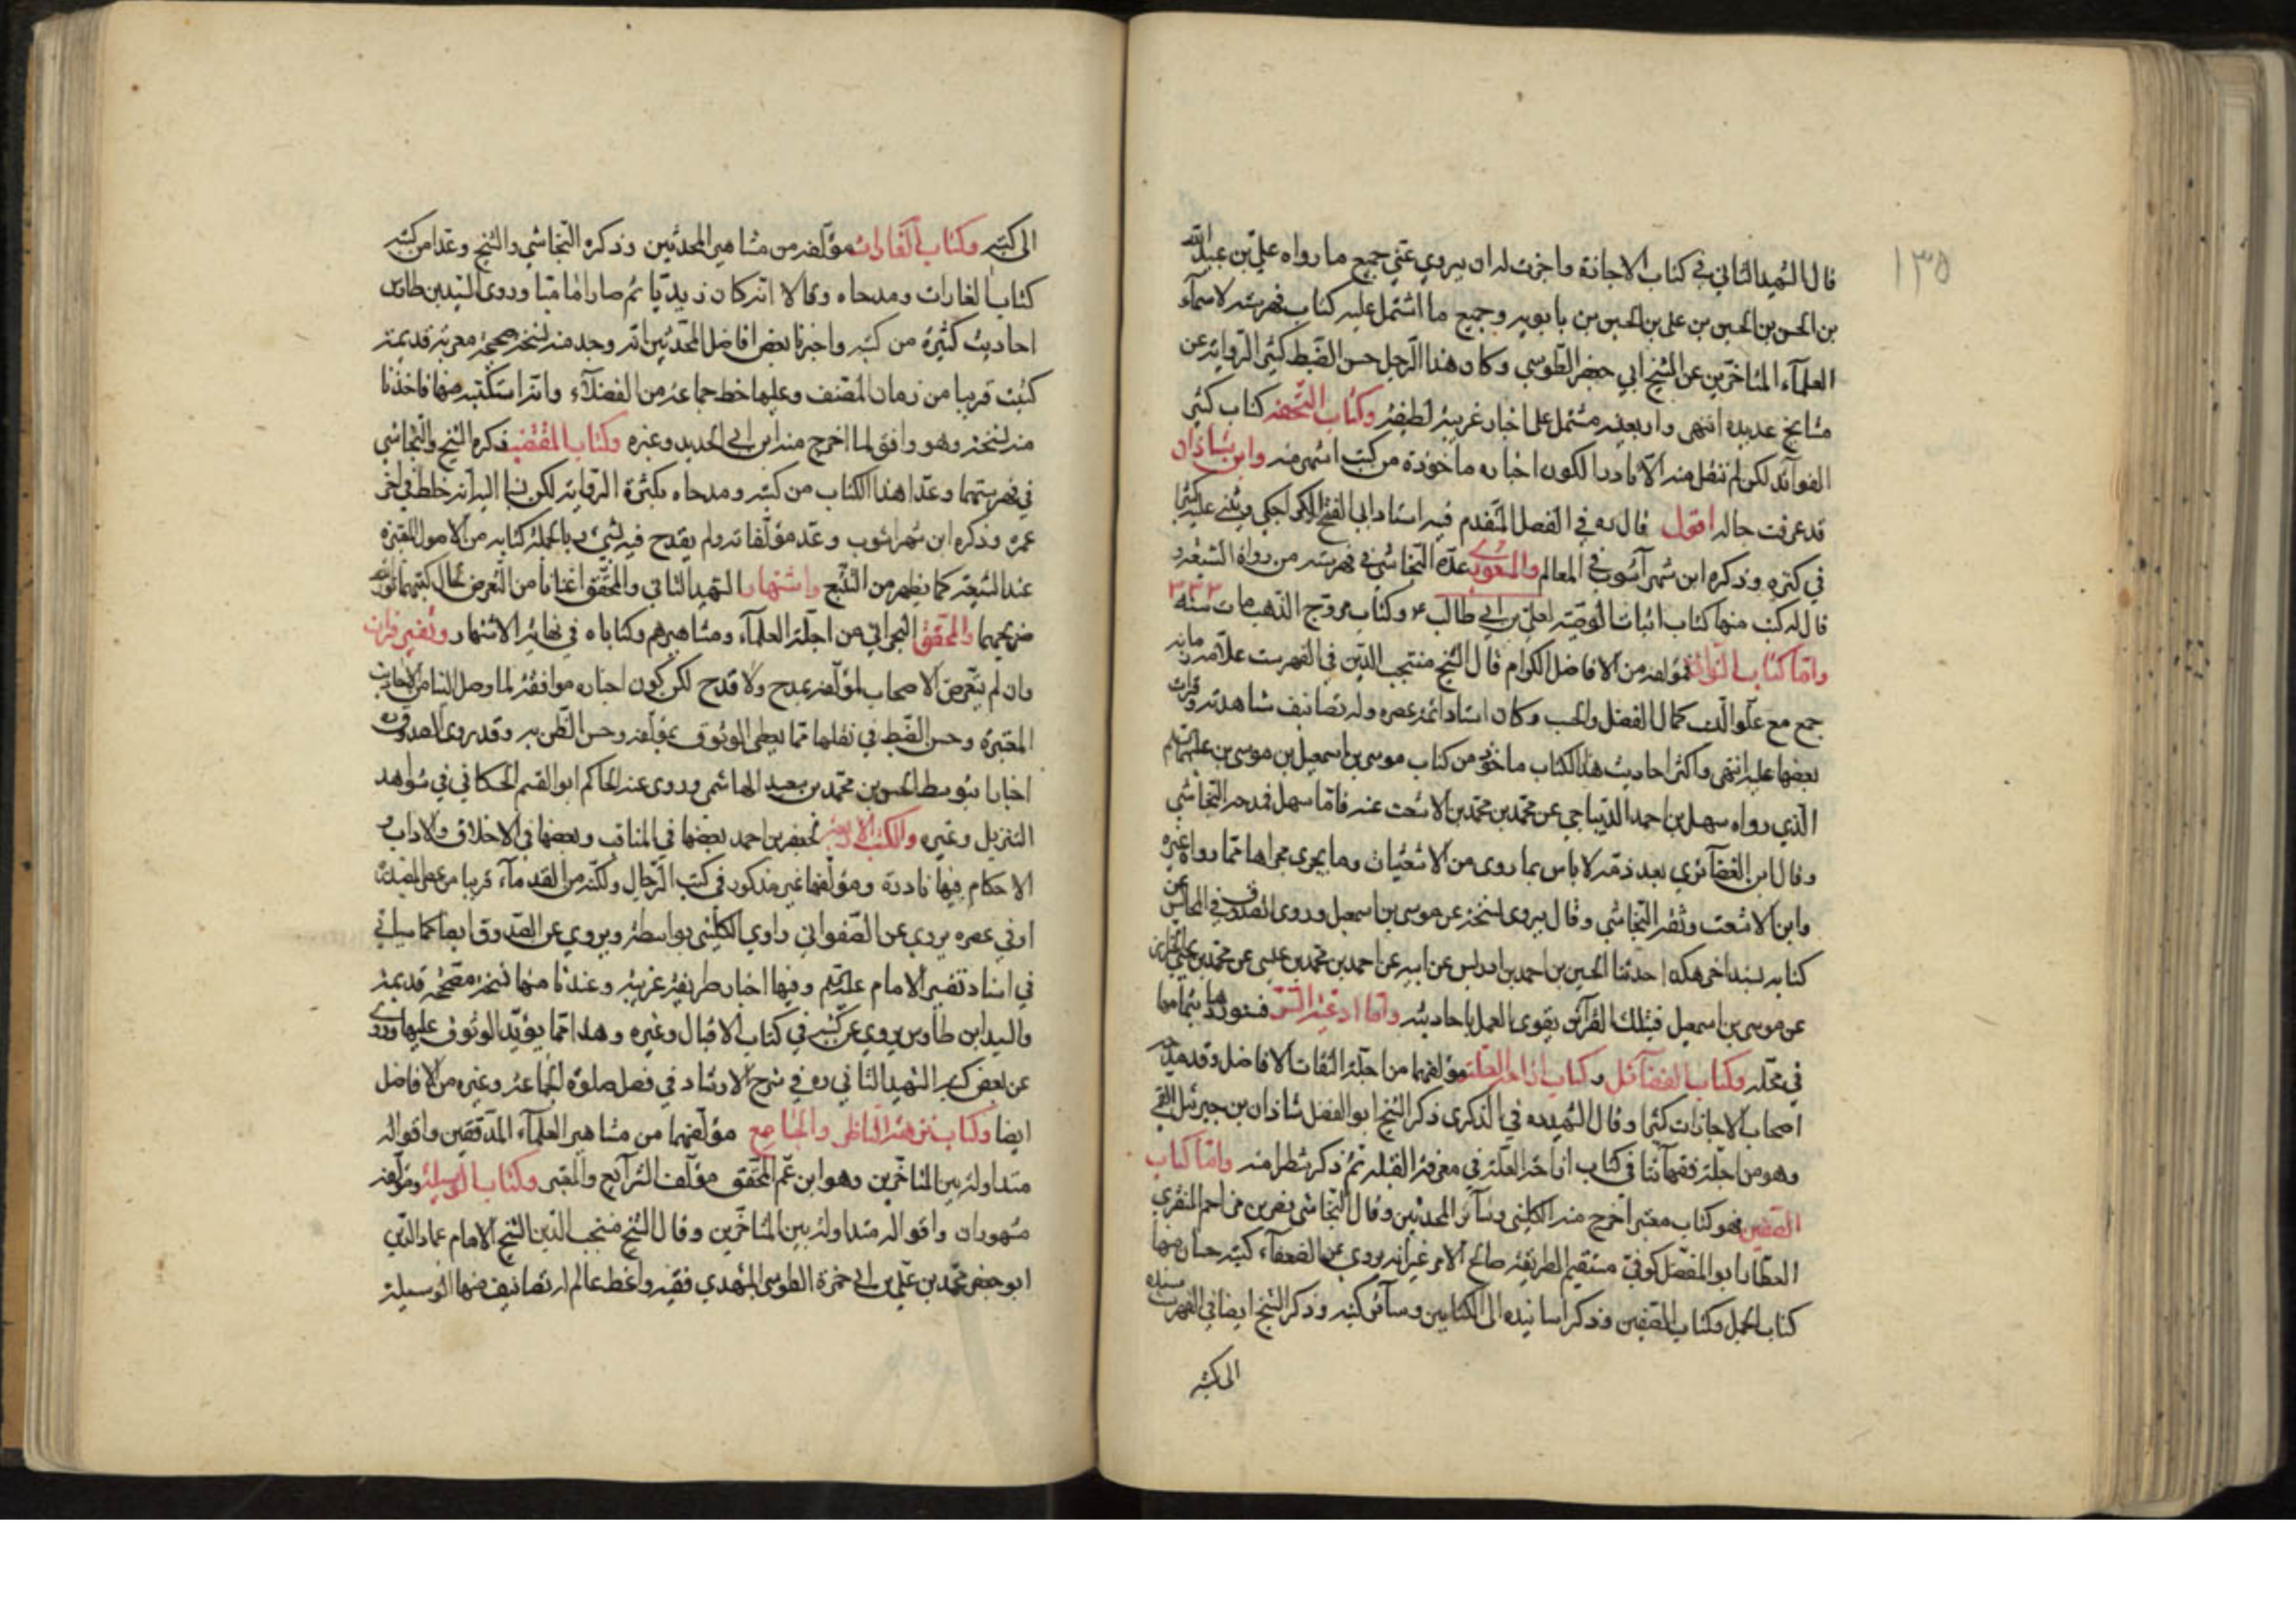 ١٣٥
قال الشهيد الثاني في كتاب الاجازة واجزت له ان يروي عني جميع ما رواه علي بن عبيد الله
بن الحسن بن الحسين بن علي بن الحسين بن بابويه وجميع ما اشتمل عليه كتاب فهرسته لاسماء
العلماء المتاخرين عن الشيخ ابي جعفر الطوسي وكان هذا الرجل حسن الضبط كثير الرواية عن
مشايخ عديدة انتهى واربعينه مشتمل على اخبار غريبة لطيفة وكتاب التحفة كتاب كثير
الفوائد لكن لم ننقل منه الا نادرا لكون اخباره ماخوذة من كتب اشهر منه وابن شاذان
قد عرفت حاله اقول قال ره في الفصل المتقدم فيه استاد ابي الفتح الكراجكي ويثني عليه كثيرا
في كنزه وذكره ابن شهر آشوب في المعالم والمسعودي عده النجاشي في فهرسته من رواة الشيعة و
قال له كتب منها كتاب اثبات الوصية لعلي بن ابي طالب ع وكتاب مروج الذهب مات سنة ٣٣٣
واما كتاب النوادر فمؤلفه من الافاضل الكرام قال الشيخ منتجب الدين في الفهرست علامة زمانه
جمع مع علو النسب كمال الفضل والحسب وكان استاد ائمة عصره وله تصانيف شاهدتها وقرات
بعضها عليه انتهى واكثر احاديث هذا الكتاب ماخوذ من كتاب موسى بن اسمعيل بن موسى بن جعفر عليهما السلم
الذي رواه سهل بن احمد الديباجي عن محمد بن محمد بن الاشعث عنه فاما سهل فمدحه النجاشي
وقال ابن الغضائري بعد ذمه لا باس بما روى من الاشعثيات وما يجري مجراها مما رواه غيره
وابن الاشعث وثقه النجاشي وقال يروي نسخة عن موسى بن اسمعيل وروى الصدوق في المجالس من
كتابه بسند اخر هكذا حدثنا الحسين بن احمد بن ادريس عن ابيه عن احمد بن محمد بن عيسى عن محمد بن يحيى الخزاز
عن موسى بن اسمعيل فبتلك القرائن يقوى العمل باحاديثه واما ادعية السر فسنوردها بتمامها
في محله وكتاب الفضائل وكتاب ازاحة العلة مؤلفهما من اجلة الثقات الافاضل وقد مدحه
اصحاب الاجازات كثيرا وقال الشهيد ره في الذكرى ذكر الشيخ ابو الفضل شاذان بن جبرئيل القمي
وهو من اجلة فقهائنا في كتاب ازاحة العلة في معرفة القبلة ثم ذكر شطرا منه واما كتاب
الصفين فهو كتاب معتبر اخرج منه الكليني وسائر المحدثين وقال النجاشي نصر بن مزاحم المنقري
العطار ابو المفضل كوفي مستقيم الطريقة صالح الامر غير انه يروي عن الضعفاء كتبه حسان منها
كتاب الجمل وكتاب الصفين وذكر اسانيده الى الكتابين وسائر كتبه وذكر الشيخ ايضا في الفهرست سنده
الى كتبه
الى كتبه وكتاب الغارات مؤلفه من مشاهير المحدثين وذكره النجاشي والشيخ وعدا من كتبه
كتاب الغارات ومدحاه وقالا انه كان زيديا ثم صار اماميا وروى السيد بن طاوس
احاديث كثيرة من كتبه واخبرنا بعض افاضل المحدثين انه وجد منه نسخة صحيحة معربة قديمة
كتبت قريبا من زمان المصنف وعليها خط جماعة من الفضلاء وانه استكتبه منها فاخذنا
منه نسخة وهو وافق لما اخرج منه ابن ابي الحديد وغيره وكتاب المقتضب ذكره الشيخ والنجاشي
في فهرستهما وعدا هذا الكتاب من كتبه ومدحاه بكثرة الرواية لكن نسبا اليه انه خلط في اخر
عمره وذكره ابن شهر اشوب وعد مؤلفاته ولم يقدح فيه بشيء وبالجملة كتابه من الاصول المعتبرة
عند الشيعة كما يظهر من التتبع واشتهار الشهيد الثاني والمحقق اغنانا من التعرض لحال كتبهما نور الله
ضريحهما والمحقق البحراني من اجلة العلماء ومشاهيرهم وكتاباه في نهاية الاشتهار وتفسير فرات
وان لم يتعرض الاصحاب لمؤلفه بمدح ولا قدح لكن كون اخباره موافقة لما وصل الينا من الاحاديث
المعتبرة وحسن الضبط في نقلها مما يعطي الوثوق بمؤلفه وحسن الظن به وقد روى الصدوق ره
اخبارا بتوسط الحسن بن محمد بن سعيد الهاشمي وروى عنه الحاكم ابو القسم الحسكاني في شواهد
التنزيل وغيره والكتب الاربعة لجعفر بن احمد بعضها في المناقب وبعضها في الاخلاق والاداب و
الاحكام فيها نادرة ومؤلفها غير مذكور في كتب الرجال ولكنه من القدماء قريبا من عصر المفيد
او في عصره يروي عن الصفواني راوي الكليني بواسطة ويروي عن الصدوق ايضا كما سياتي
في اسناد تفسير الامام عليه السلم وفيها اخبار طريفة غريبة وعندنا منها نسخة مصححة قديمة
والسيد ابن طاوس يروي عن كتبه في كتاب الاقبال وغيره وهذا مما يؤيد الوثوق عليها وروى
عن بعض كتبه الشهيد الثاني ره في شرح الارشاد في فصل صلوة الجماعة وغيره من الافاضل
ايضا وكتاب نزهة الناظر والجامع مؤلفهما من مشاهير العلماء المدققين واقواله
متداولة بين المتاخرين وهو ابن عم المحقق مؤلف الشرايع والمعتبر وكتاب الوسيلة ومؤلفه
مشهوران واقواله متداولة بين المتاخرين وقال الشيخ منتجب الدين الشيخ الامام عماد الدين
ابو جعفر محمد بن علي بن ابي حمزة الطوسي المشهدي فقيه واعظ عالم له تصانيف منها الوسيلة